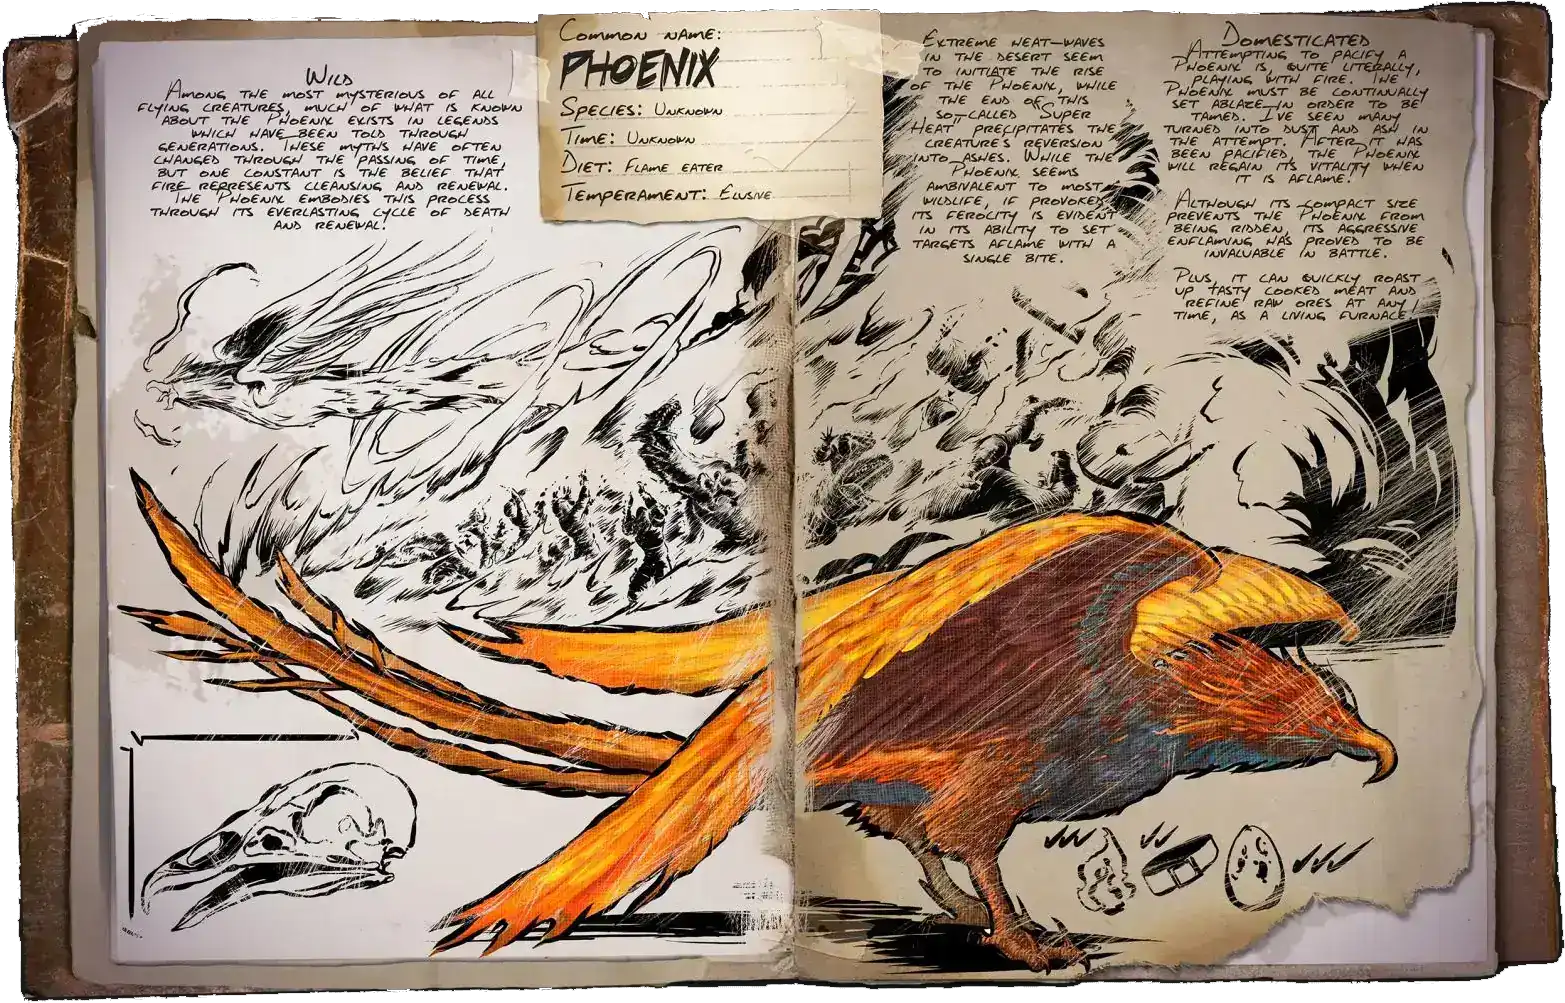 Common name:
PHOENIX
Species: Unknown
Time: Unknown
Diet: Flame eater
Temperament: Elusive
Wild
Among the most mysterious of all
flying creatures, much of what is known
about the Phoenix exists in legends
which have been told through
generations. These myths have often
changed through the passing of time,
but one constant is the belief that
fire represents cleansing and renewal.
The Phoenix embodies this process
through its everlasting cycle of death
and renewal.
Extreme heat-waves
in the desert seem
to initiate the rise
of the Phoenix, while
the end of this
so-called Super
Heat precipitates the
creature's reversion
into ashes. While the
Phoenix seems
ambivalent to most
wildlife, if provoked,
its ferocity is evident
in its ability to set
targets aflame with a
single bite.
Domesticated
Attempting to pacify a
Phoenix is, quite literally,
playing with fire. The
Phoenix must be continually
set ablaze in order to be
tamed. I've seen many
turned into dust and ash in
the attempt. After it has
been pacified, the Phoenix
will regain its vitality when
it is aflame.
Although its compact size
prevents the Phoenix from
being ridden, its aggressive
enflaming has proved to be
invaluable in battle.
Plus, it can quickly roast
up tasty cooked meat and
refine raw ores at any
time, as a living furnace!